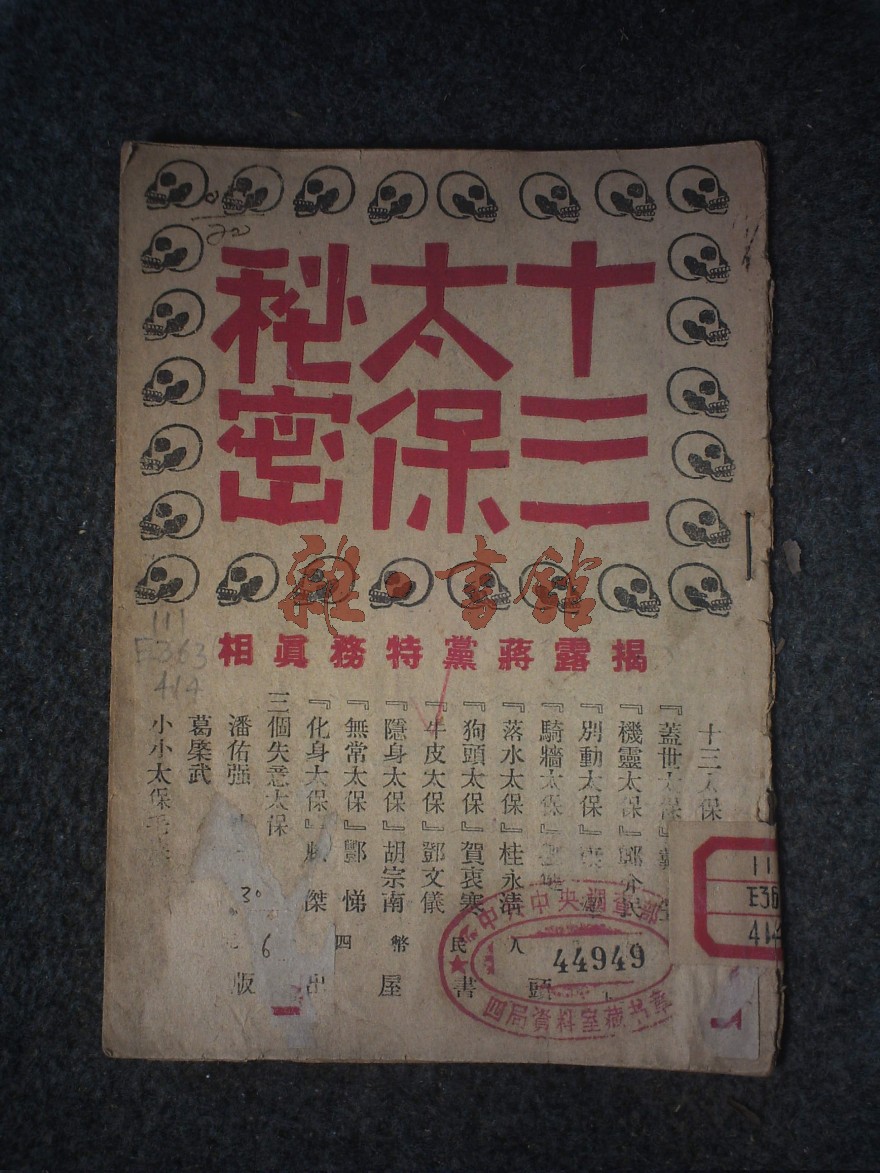 十三
太保
秘密
揭露蔣黨特務眞相
十三太保
『蓋世太保』
『機靈太保』鄭介民
『別動太保』
『騎牆太保』
『落水太保』桂永清
『狗頭太保』賀衷寒
『牛皮太保』鄧文儀
『隱身太保』胡宗南
『無常太保』酆悌
『化身太保』傑
三個失意太保
潘佑强
葛槩武
小小太保
人頭
民書
幣屋
四出
版
中央調查部
44949
四局資料室藏書章
111
E363
414
11
E36
414
30
6
雜·書館